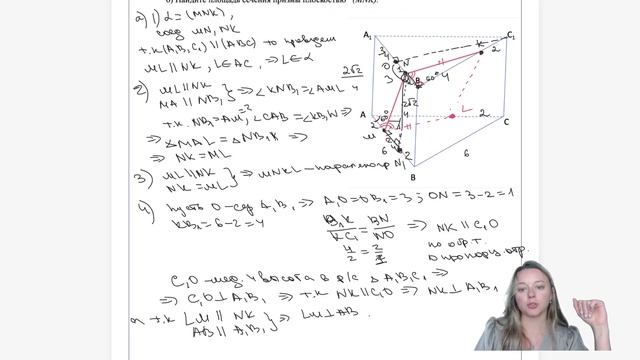 б) Найдите площадь сечения призмы плоскостью (MNK).
а) 1) α = (MNK),
соед MN, NK
т.к (A₁B₁C₁) || (ABC) то проведем
ML || NK, L∈AC, ⇒ L∈α
2) ML || NK
MA || NB₁ } ⇒ ∠KNB₁ = ∠AML
т.к. NB₁ = AM = 2, ∠CAB = ∠KB₁N ⇒
⇒ △MAL = △NB₁K ⇒
⇒ NK = ML
3) ML || NK
NK = ML } ⇒ MNKL – параллелогр
4) пусть O – сер A₁B₁ ⇒ A₁O = OB₁ = 3; ON = 3-2 = 1
KB₁ = 6-2 = 4
B₁K/KC₁ = BN/NO ⇒ NK || C₁O
4/2 = 2/1
по обр. т.
о пропорц. отр.
C₁O – мед и высота в р/с △A₁B₁C₁ ⇒
⇒ C₁O ⊥ A₁B₁ ⇒ т.к NK || C₁O ⇒ NK ⊥ A₁B₁
т.к LM || NK
AB || A₁B₁ } ⇒ LM ⊥ AB.
A₁
C₁
K
2
N
O
3
B₁
60°
4
2√2
A
L
2
C
M
6
N₁
B
6